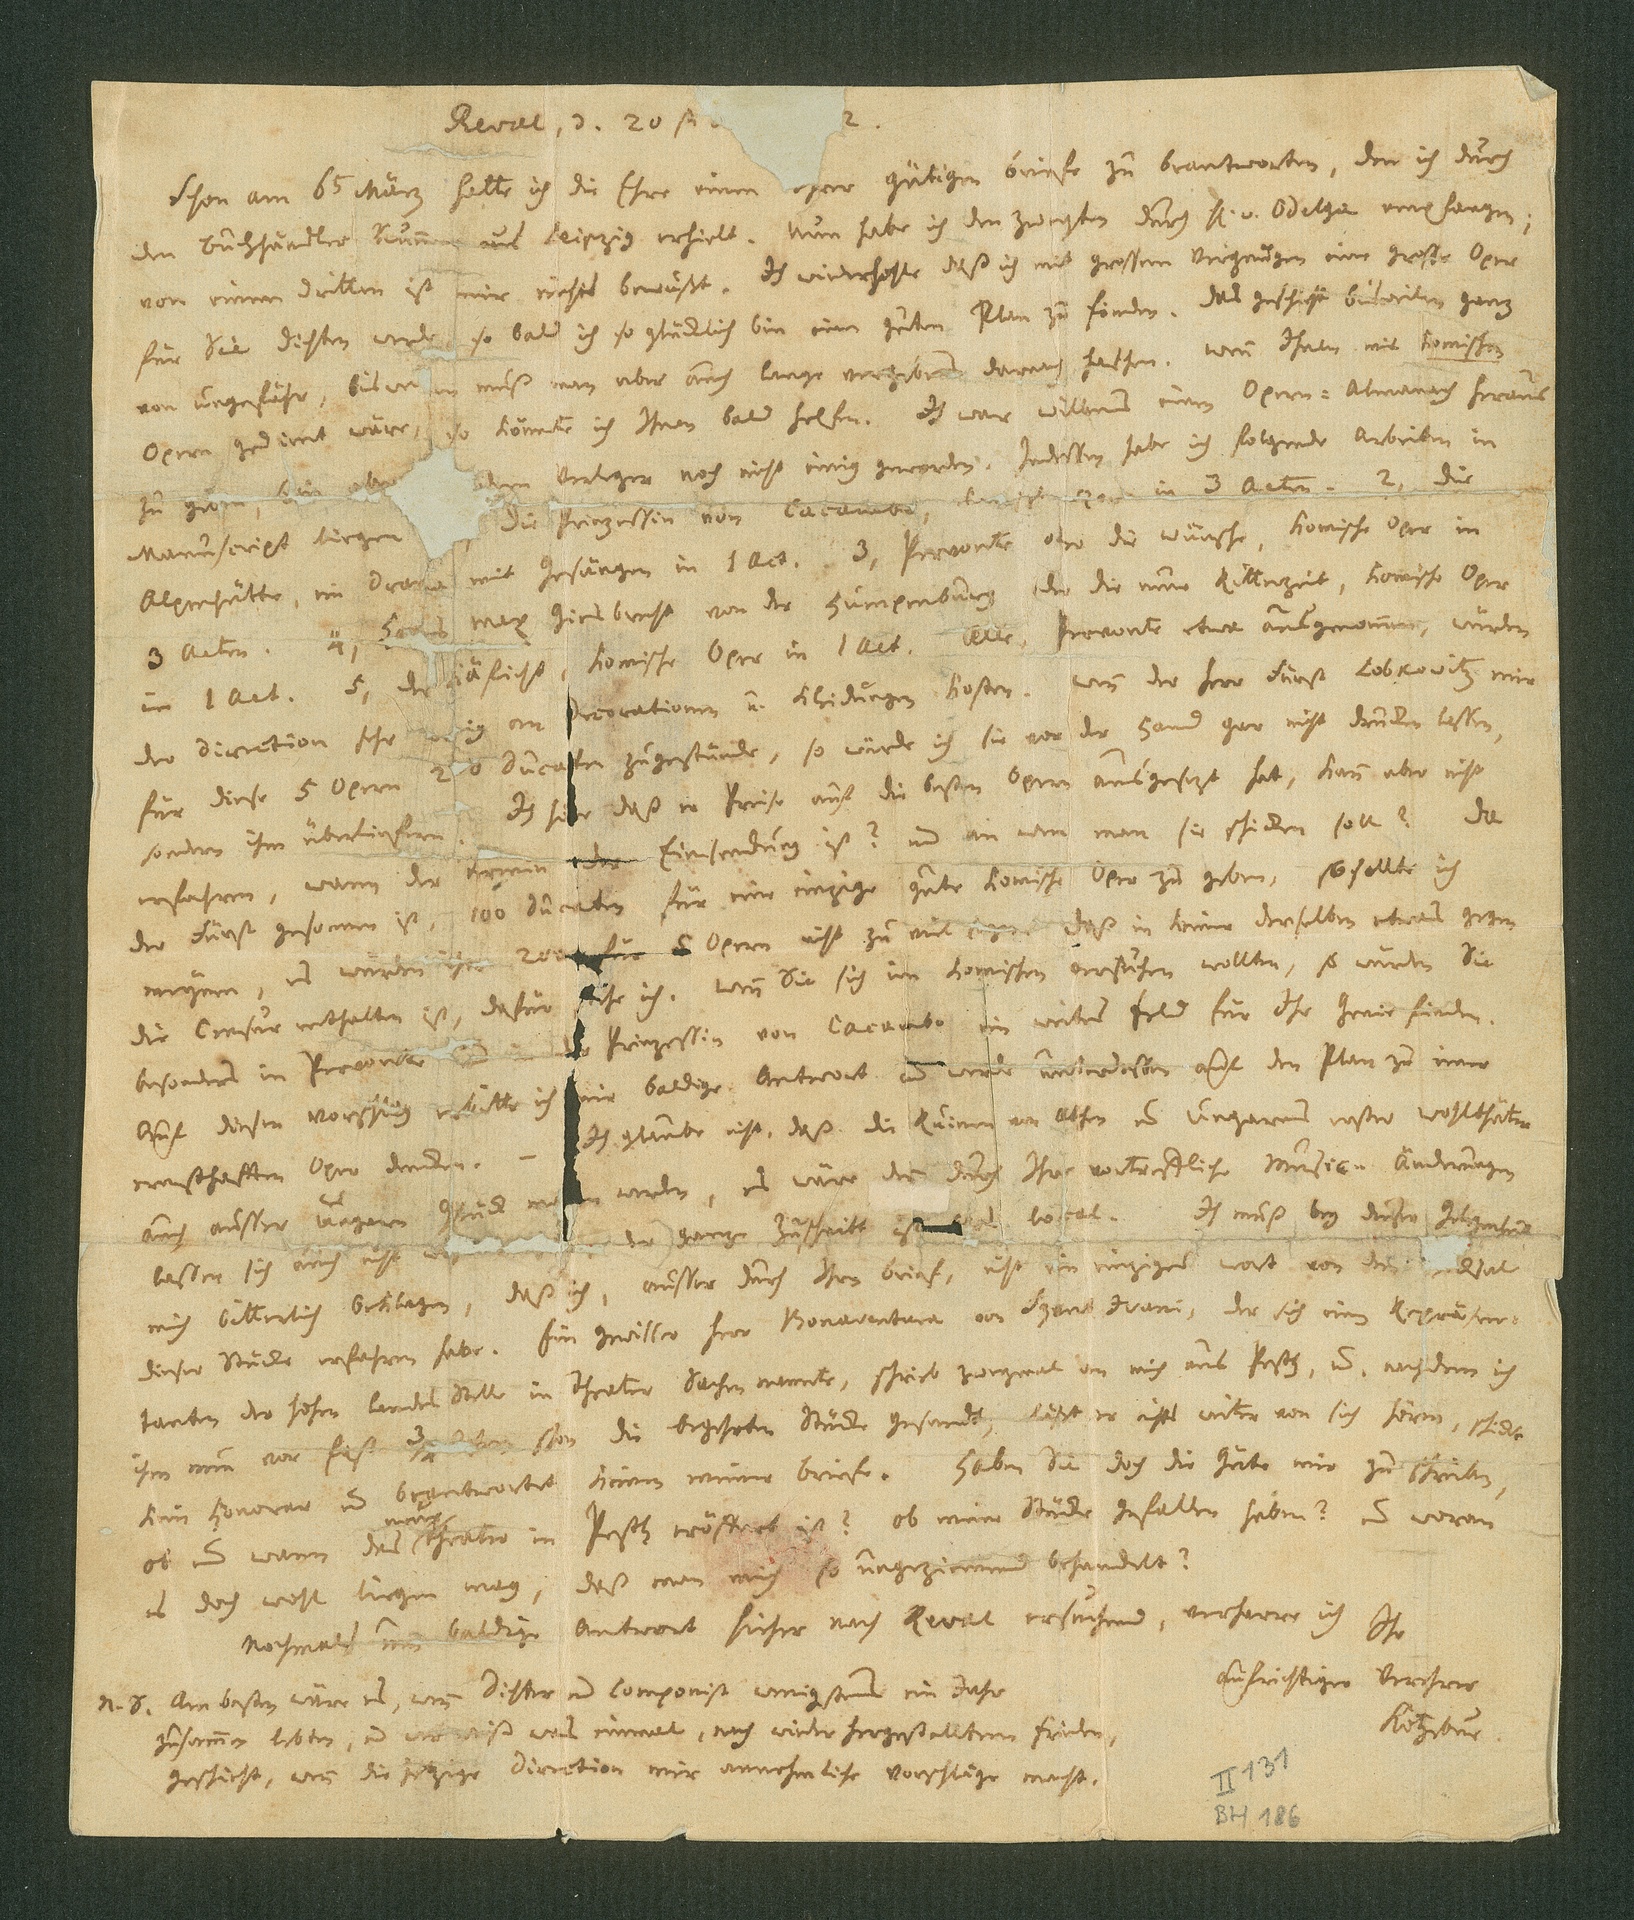 Reval, d. 20 A 2.
Schon am 6ten März hatte ich die Ehre einen Ihrer gütigen Briefe zu beantworten, den ich durch
den Buchhändler aus Leipzig erhielt. Nun habe ich den zweyten durch H. v. Odelga empfangen;
von einem dritten ist mir nichts bewußt. Ich wiederhohle daß ich mit grossem Vergnügen eine große Oper
für Sie dichten werde so bald ich so glücklich bin einen guten Plan zu finden. Das geschieht bisweilen ganz
von ungefähr, bisweilen muß man aber auch lange vergebens darnach haschen. Wenn Ihnen mit komischen
Opern gedient wäre, so könnte ich Ihnen bald helfen. Ich war willens einen Opern-Almanach heraus
zu geben, bin aber dem Verleger noch nicht einig geworden. Indessen habe ich folgende Arbeiten in
Manuscript liegen Die Prinzessin von Cacambo, komische Oper in 3 Acten. 2, Die
Alpenhütte, ein Drama mit Gesängen in 1 Act. 3, Pervonte oder die Wünsche, komische Oper in
3 Acten. 4, Hans Max Giesbrecht von der Humpenburg oder die neue Ritterzeit, komische Oper
in 1 Act. 5, der Käficht, komische Oper in 1 Act. Alle, Pervonte etwa ausgenommen, würden
der Direction sehr wenig an Decorationen u. Kleidungen kosten. Wenn der Herr Fürst Lobkowitz mir
für diese 5 Opern 200 Ducaten zugestünde, so würde ich sie vor der Hand gar nicht drucken lassen,
sondern ihm überliefern. Ich höre daß er Preise auf die besten Opern ausgesezt hat, kann aber nicht
erfahren, wann der Termin der Einsendung ist? und an wen man sie schicken soll? Da
der Fürst gesonnen ist, 100 Ducaten für eine einzige gute komische Oper zu geben, so sollte ich
meynen, es würden ihm 200 für 5 Opern nicht zu viel daß in keiner derselben etwas gegen
die Censur enthalten ist, dafür stehe ich. Wenn Sie sich im komischen versuchen wollten, so würden Sie
besonders in Pervonte und in der Prinzessin von Cacambo ein weites Feld für Ihr Genie finden.
Auf diesen Vorschlag erbitte ich mir baldige Antwort und werde unterdessen auf den Plan zu einer
ernsthafften Oper denken. – Ich glaube nicht, daß die Ruinen von Athen und Ungarns erster Wohlthäter
auch ausser Ungarn Glück machen werden, es wäre denn durch Ihre vortreffliche Musick. Änderungen
lassen sich auch nicht der ganze Zuschnitt ist local. Ich muß bey dieser Gelegenheit
mich bitterlich beklagen, daß ich, ausser durch Ihren Brief, nicht ein einziges Wort von dem Schicksal
dieser Stücke erfahren habe. Ein gewisser Herr Bonaventura von Szent Ivani, der sich einen Repräsen-
tanten der hohen Landes Stelle in Theater Sachen nannte, schrieb zweymal an mich aus Pesth, und, nachdem ich
ihm nun vor fast 3/4 Jahren schon die begehrten Stücke gesandt, läßt er nichts weiter von sich hören, schickt
kein Honorar und beantwortet keinen meiner Briefe. Haben Sie doch die Güte mir zu schreiben,
ob und wann das neue Theater in Pesth eröffnet ist? ob meine Stücke gefallen haben? und woran
es doch wohl liegen mag, daß man mich so ungeziemend behandelt?
Nochmals um baldige Antwort hieher nach Reval ersuchend, verharre ich Ihr
aufrichtiger Verehrer
Kotzebue.
N. S. Am besten wäre es, wenn Dichter und Componist wenigstens ein Jahr
zusammen lebten, und wer weiß was einmal, nach wieder hergestelltem Frieden,
geschieht, wenn die jetzige Direction mir annehmliche Vorschläge macht.
II 131
BH 186